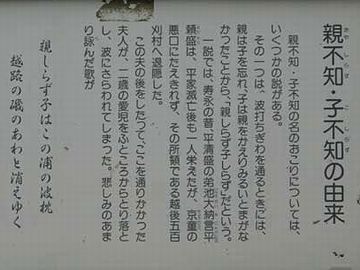 親不知・子不知の由来
親不知・子不知の名のおこりについては、
いくつかの説がある。
その一つは、波打ちぎわを通るときには、
親は子を忘れ、子は親をかえりみるいとまがな
かったことから、「親しらず子しらず」だという。
一説では、寿永の昔、平清盛の弟池大納言平
頼盛は、平家滅亡後も一人栄えたが、京童の
悪口にたえきれず、その所領である越後五百
刈村へ退隠した。
この夫の後をしたって、ここを通りかかった
夫人が、二歳の愛児をふところからとり落と
し、波にさらわれてしまった。悲しみのあま
り詠んだ歌が
親しらず子はこの浦の波枕
越路の磯のあわと消えゆく